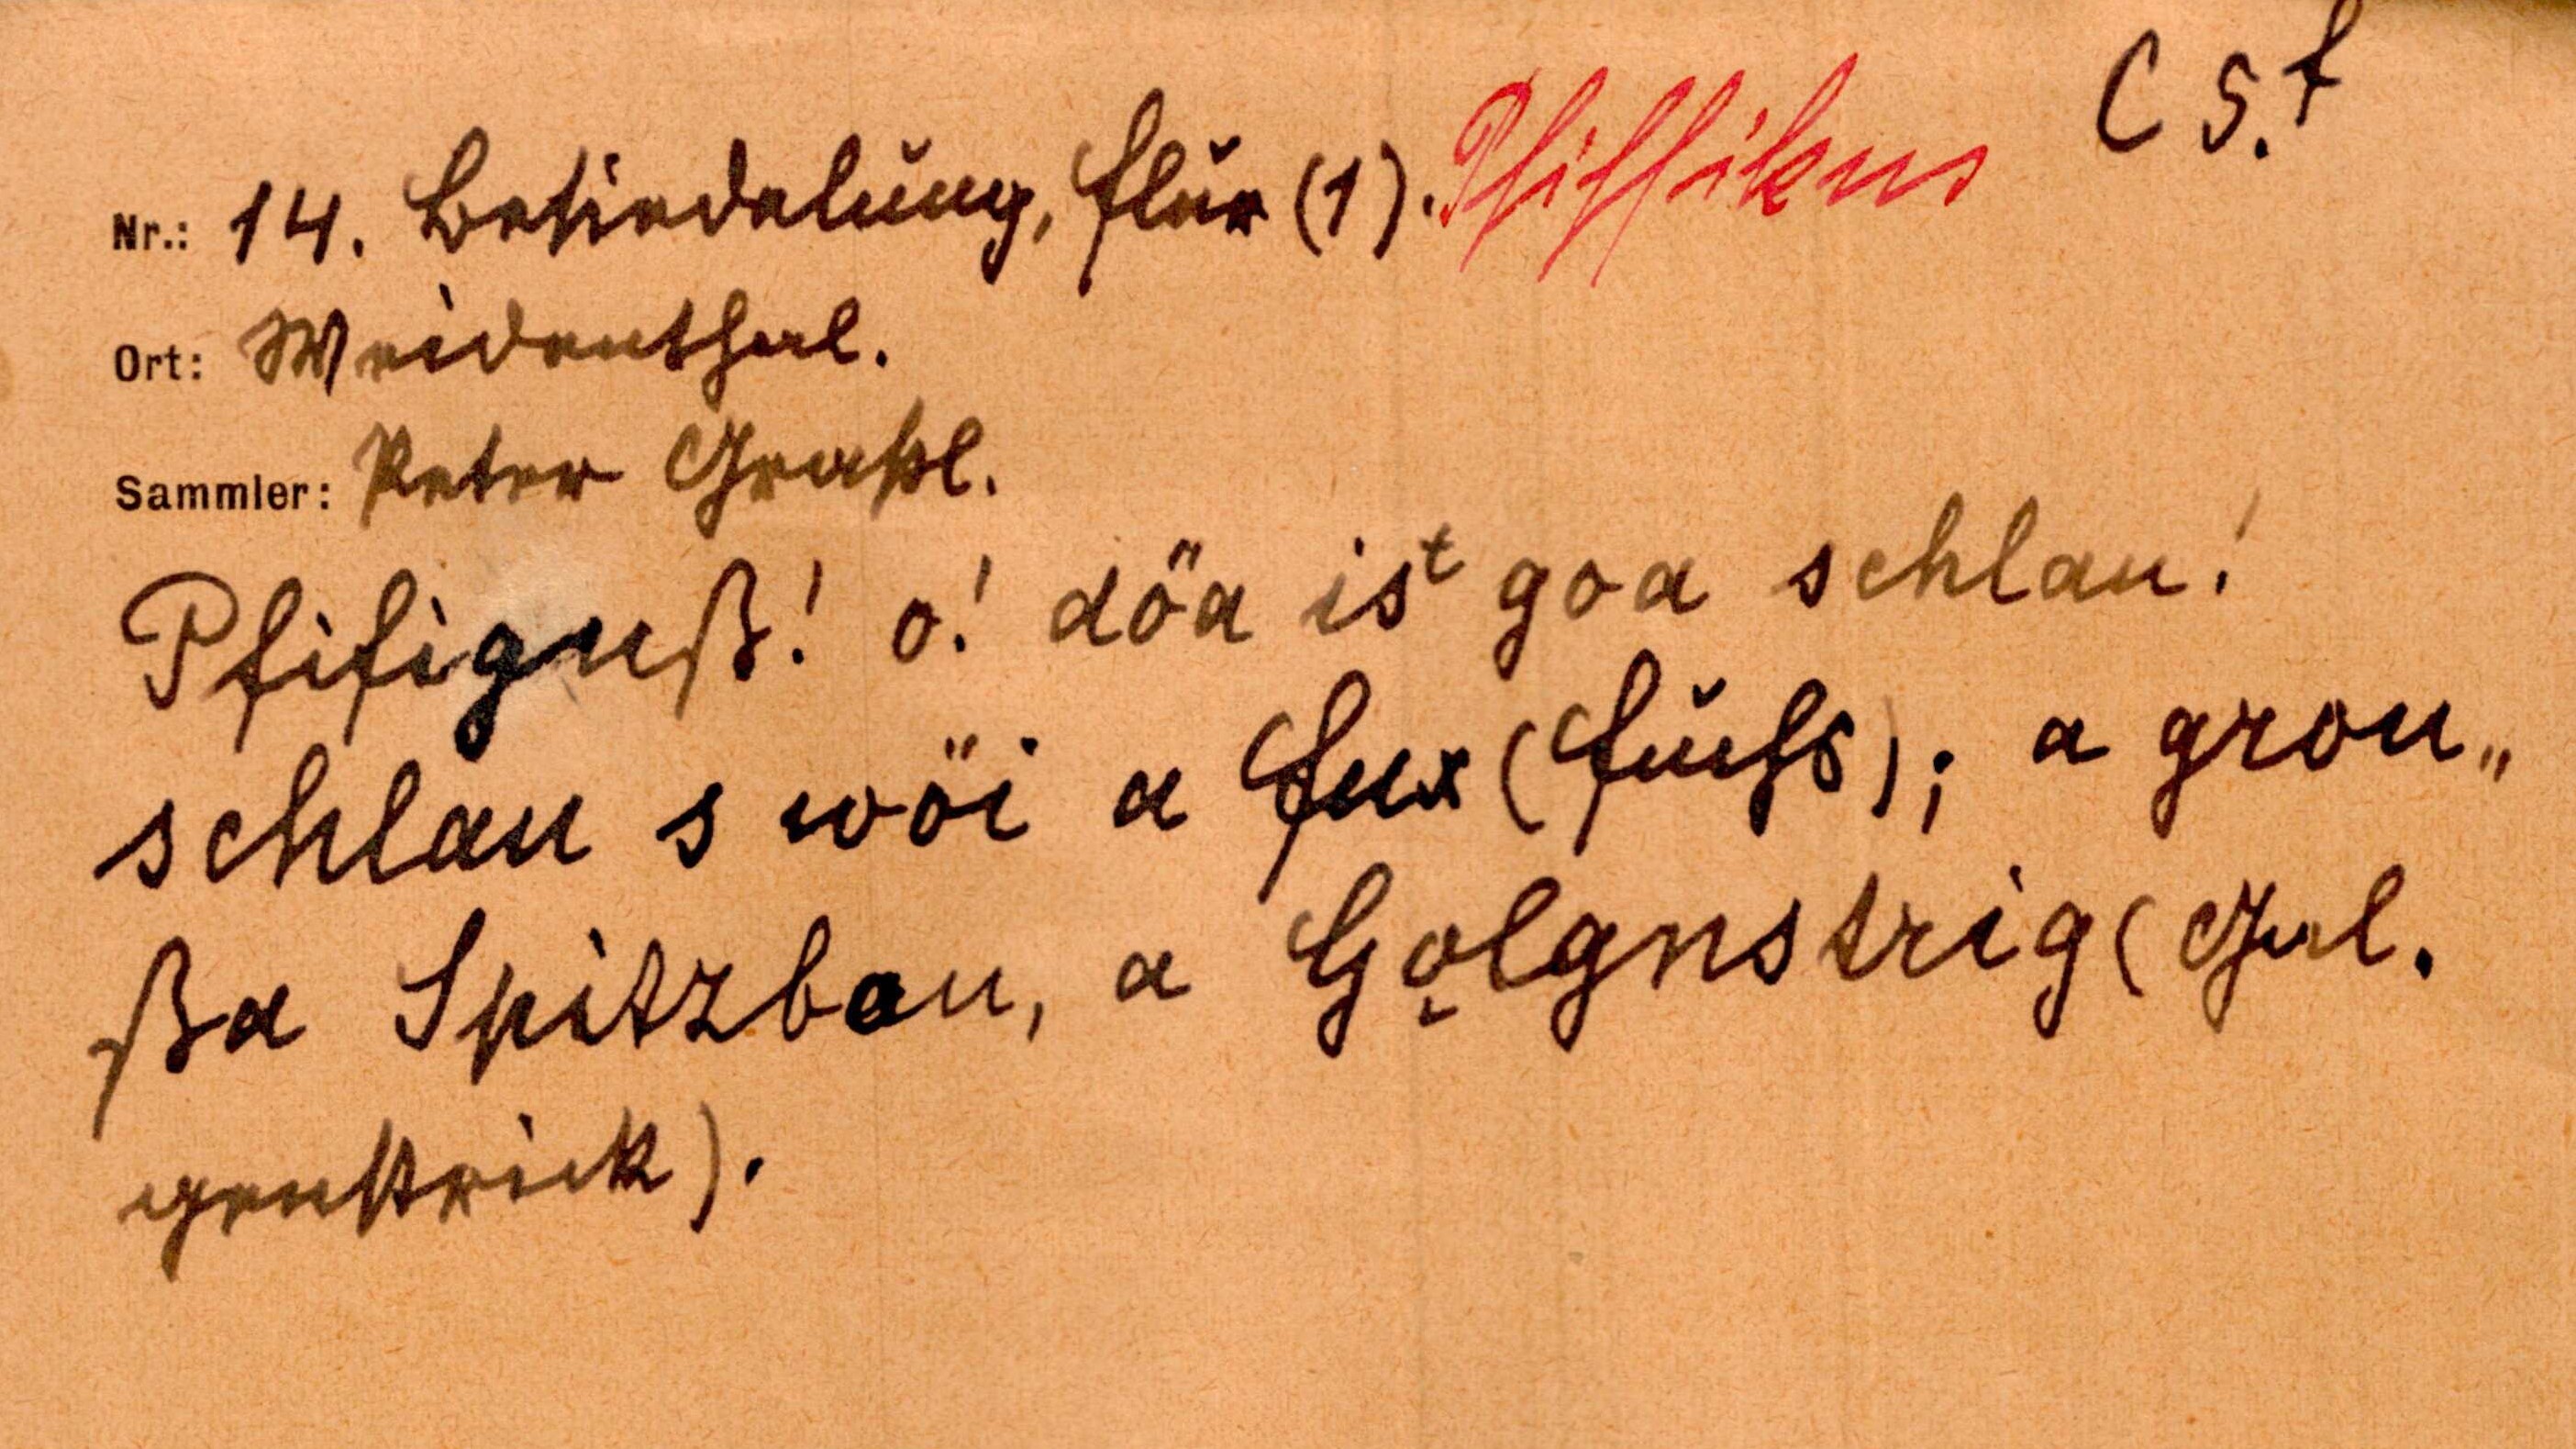 C 5.f
Nr.: 14. Besiedelung, Flur (1). Pfiffikus
Ort: Weidenthal.
Sammler: Peter Graßl.
Pfifiguß! o! döa ist goa schlau!
schlau s wöi a Fux (Fuchs); a grou„
ßa Spitzbou, a Gǫlgnstrig (Gal.
genstrick).